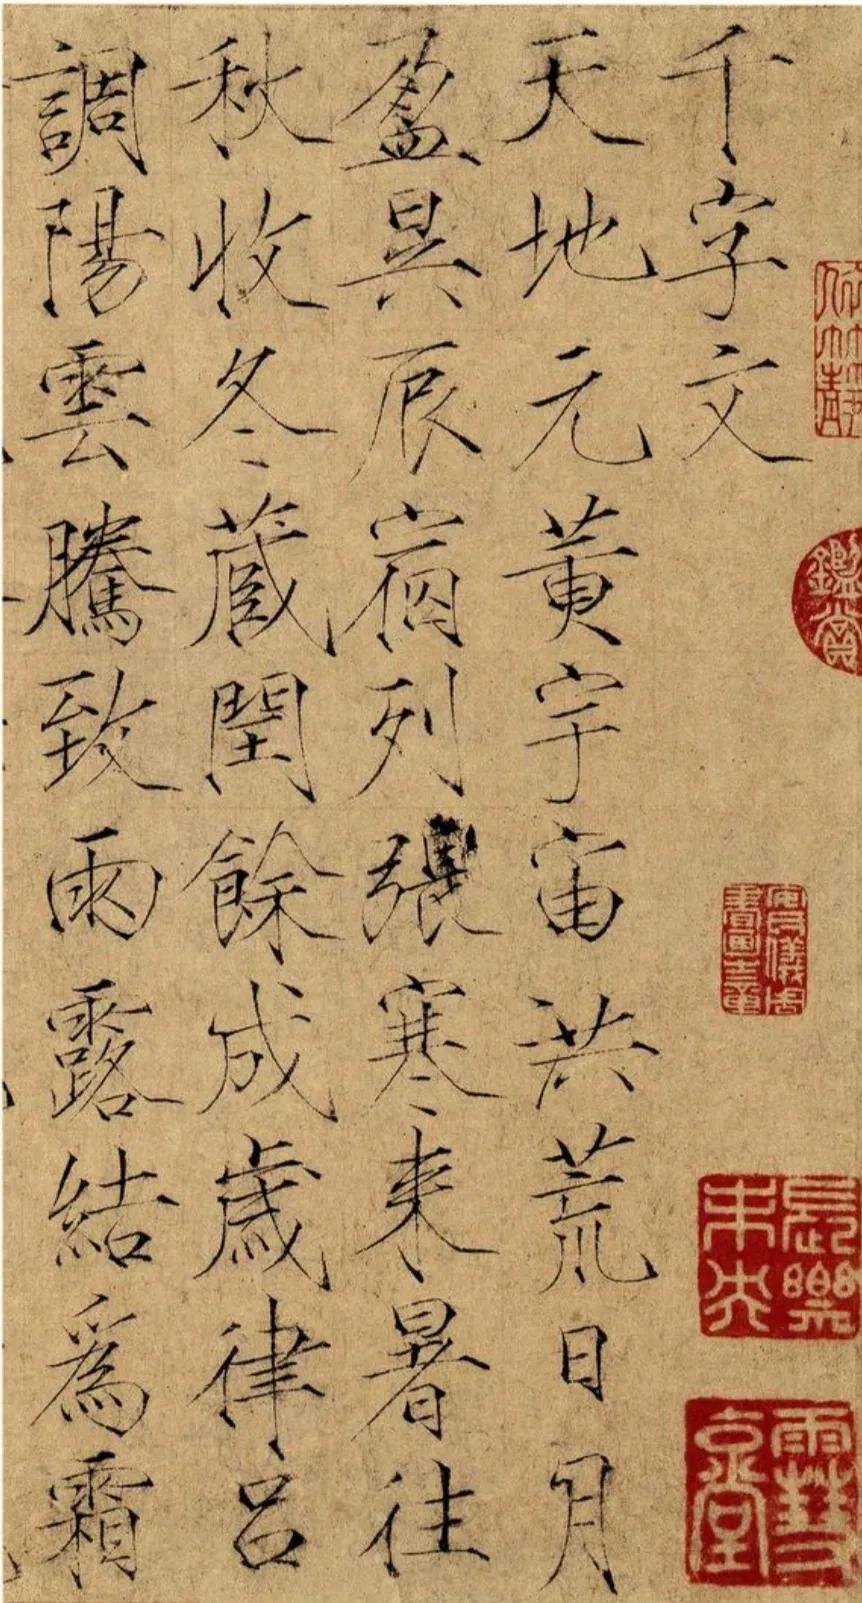 鑑賞
長樂未央
千字文
天地元黄宇宙洪荒日月
盈昃辰宿列張寒来暑往
秋收冬蔵閏餘成歳律呂
調陽雲騰致雨露結爲霜